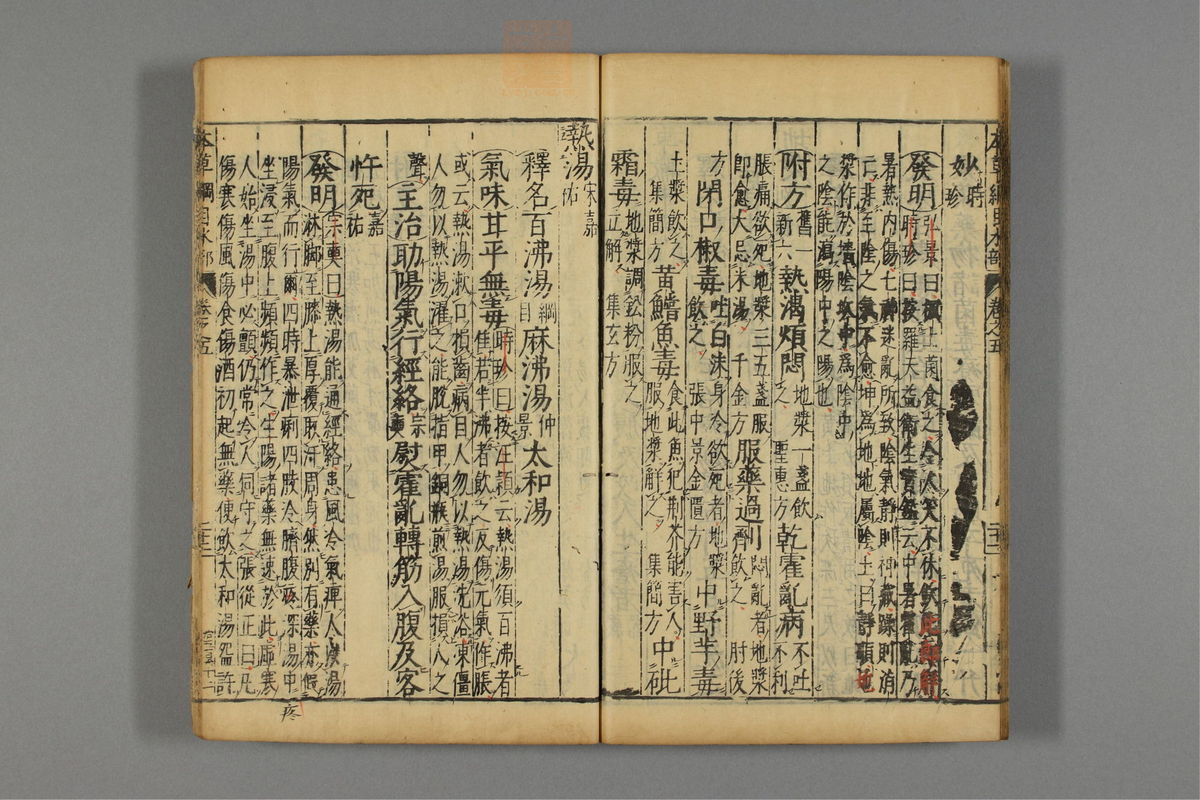 本草綱目水部 卷之五
妙時珍
發明弘景曰楓上菌食之令人笑不休飲此即解
時珍曰按羅天益衛生寶鑑云中暑霍亂乃
暑熱內傷七神迷亂所致陰氣靜則神藏躁則消
亡非至陰之氣不愈坤為地地屬陰土曰靜順地
漿作於墻陰坎中為陰中
之陰能瀉陽中之陽也
附方舊一新六熱渴煩悶地漿一盞飲之聖惠方乾霍亂病不吐不利
脹痛欲死地漿三五盞服
即愈大忌米湯千金方服藥過劑悶亂者地漿飲之肘後
方閉口椒毒吐白沫身冷欲死者地漿飲之張中景金匱方中野芋毒
土漿飲之集簡方黃鱔魚毒食此魚犯荊芥能害人服地漿解之集簡方中砒
霜毒地漿調鉛粉服之立解集玄方
熱湯宋嘉祐
釋名百沸湯綱目麻沸湯仲景太和湯
氣味甘平無毒時珍曰按汪穎云熱湯須百沸者佳若半沸者飲之反傷元氣作脹
或云熱湯漱口損齒病目人勿以熱湯洗浴凍僵
人勿以熱湯濯之能脫指甲銅瓶煎湯服損人之
聲主治助陽氣行經絡宗奭熨霍亂轉筋入腹及客
忤死嘉祐
發明宗奭曰熱湯能通經絡患風冷氣痺人以湯
淋脚至膝上厚覆取汗周身然別有藥亦假
陽氣而行爾四時暴泄痢四肢冷臍腹疼深湯中
坐浸至腹上頻頻作之生陽諸藥無速於此虛寒
人始坐湯中必顫仍常令人伺守之張從正曰凡
傷寒傷風傷食傷酒初起無藥便飲太和湯盌許
本草綱目水部 卷之五
疼